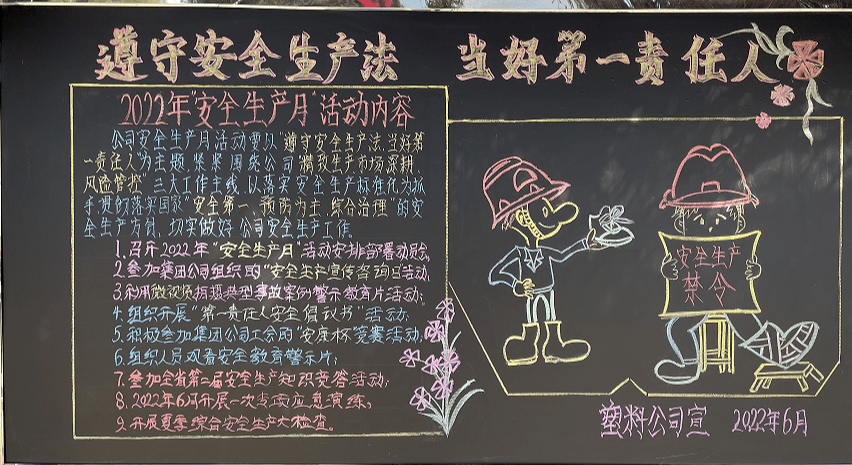 遵守安全生产法 当好第一责任人
2022年"安全生产月"活动内容
公司安全生产月活动要以"遵守安全生产法,当好第
一责任人"为主题,紧紧围绕公司"精致生产市场深耕,
风险管控"三大工作主线,以落实安全生产标准化为抓
手,贯彻落实国家"安全第一、预防为主、综合治理"的安
全生产方针,切实做好公司安全生产工作。
1.召开2022年"安全生产月"活动安排部署动员会;
2.参加集团公司组织的"安全生产宣传咨询日"活动;
3.利用微视频拍摄典型事故案例警示教育片活动;
4.组织开展"第一责任人安全倡议书"活动;
5.积极参加集团公司工会的"安康杯"竞赛活动;
6.组织人员观看安全教育警示片;
7.参加全省第二届安全生产知识竞答活动;
8.2022年6月开展一次专项应急演练;
9.开展夏季综合安全生产大检查。
安全生产
禁令
塑料公司宣 2022年6月